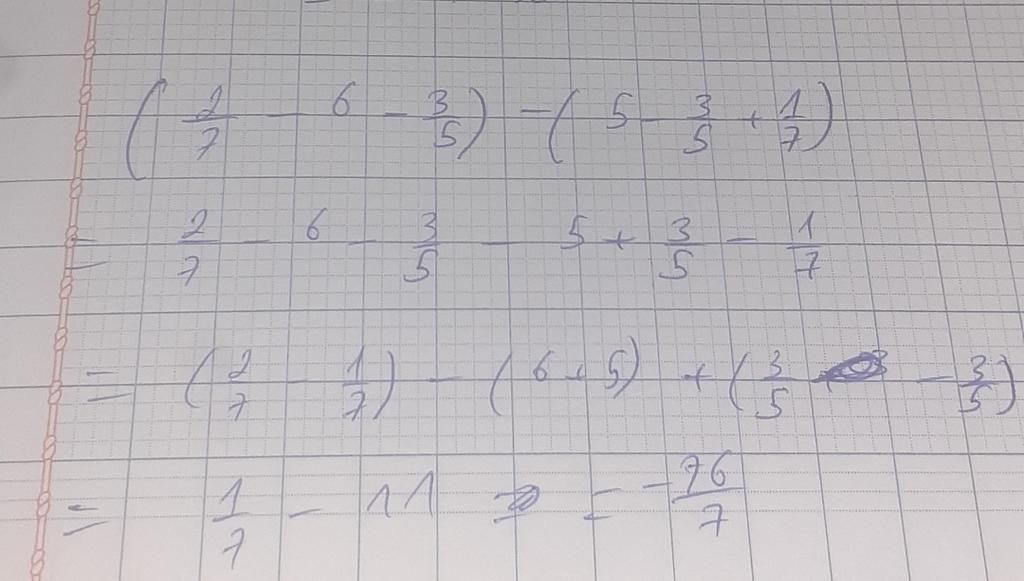 (2/7 - 6 - 3/5) - (5 - 3/5 + 1/7)
= 2/7 - 6 - 3/5 - 5 + 3/5 - 1/7
= (2/7 - 1/7) - (6 + 5) + (3/5 - 3/5)
= 1/7 - 11 = -76/7